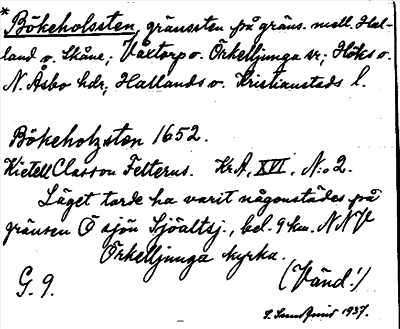 * Bökeholssten, gränssten på gräns. mell. Hal-
land o. Skåne; Våxtorp o. Örkelljunga sr; Höks o.
N. Åsbo hdr; Hallands o. Kristianstads l.
Bökeholzsten 1652.
Kietell Classon Felterus. KrA, XVI, N:o 2.
Läget torde ha varit någonstädes på
gränsen Ö sjön Sjöaltsj., bel. 9 km. NNV
Örkelljunga kyrka.
G. 9. (Vänd!)
1937.